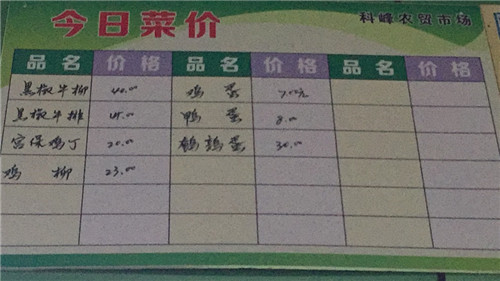 今日菜价 科峰农贸市场
品名 价格 品名 价格 品名 价格
黑椒牛柳 40.00 鸡蛋 7.00元
黑椒牛排 45.00 鸭蛋 8.00
宫保鸡丁 20.00 鹌鹑蛋 30.00
鸡柳 23.00